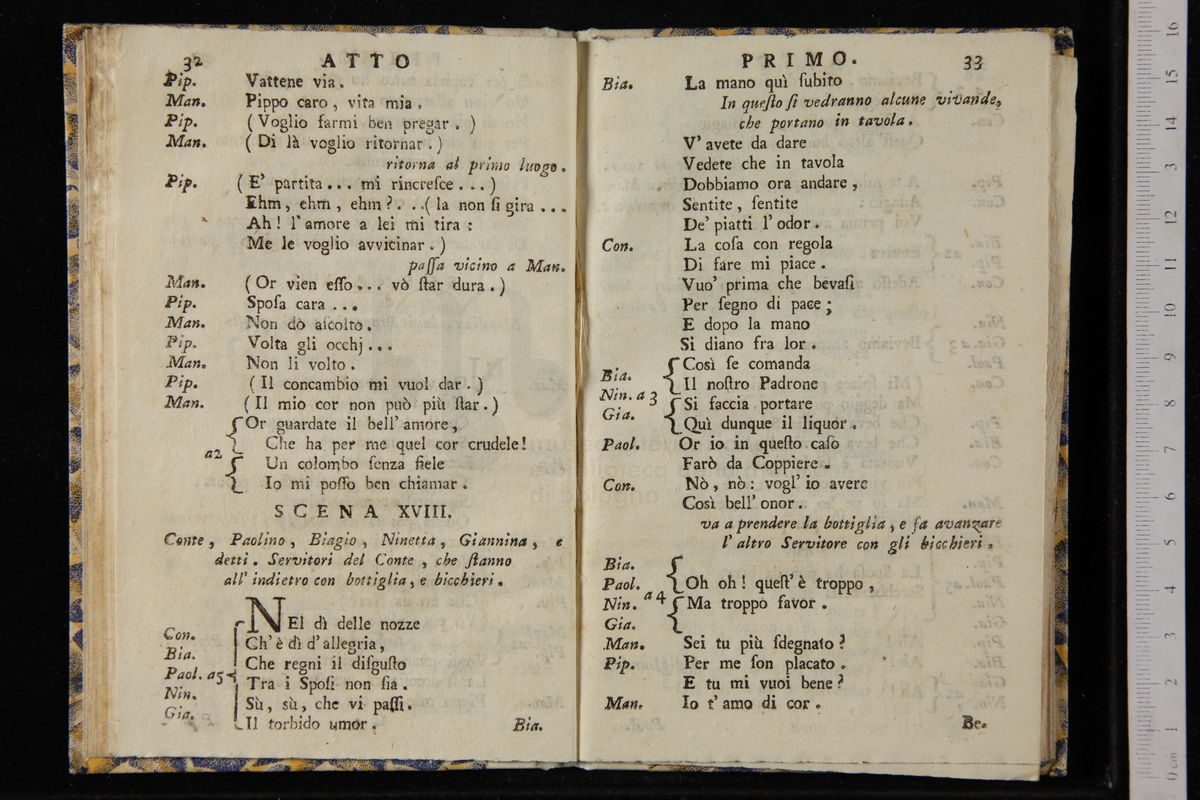 32 ATTO
Pip. Vattene via.
Man. Pippo caro, vita mia.
Pip. (Voglio farmi ben pregar.)
Man. (Di là voglio ritornar.)
ritorna al primo luogo.
Pip. (E' partita... mi rincreſce...)
Ehm, ehm, ehm?...(la non ſi gira...
Ah! l'amore a lei mi tira:
Me le voglio avvicinar.)
paſſa vicino a Man.
Man. (Or vien eſſo... vò ſtar dura.)
Pip. Spoſa cara...
Man. Non dò aſcolto.
Pip. Volta gli occhj...
Man. Non li volto.
Pip. (Il concambio mi vuol dar.)
Man. (Il mio cor non può più ſtar.)
Or guardate il bell'amore,
Che ha per me quel cor crudele!
a2
Un colombo ſenza fiele
Io mi poſſo ben chiamar.
SCENA XVIII.
Conte, Paolino, Biagio, Ninetta, Giannina, e
detti. Servitori del Conte, che ſtanno
all'indietro con bottiglia, e bicchieri.
NEl dì delle nozze
Con. Ch'è dì d'allegria,
Bia. Che regni il diſguſto
Paol. a5 Tra i Spoſi non ſia.
Nin. Sù, sù, che vi paſſi.
Gia. Il torbido umor.
Bia.
PRIMO. 33
Bia. La mano quì ſubito
In queſto ſi vedranno alcune vivande,
che portano in tavola.
V'avete da dare
Vedete che in tavola
Dobbiamo ora andare,
Sentite, ſentite
De' piatti l'odor.
Con. La coſa con regola
Di fare mi piace.
Vuo' prima che bevaſi
Per ſegno di pace;
E dopo la mano
Si diano fra lor.
Così ſe comanda
Bia. Il noſtro Padrone
Nin. a 3 Si faccia portare
Gia. Quì dunque il liquor.
Paol. Or io in queſto caſo
Farò da Coppiere.
Con. Nò, nò: vogl'io avere
Così bell'onor.
va a prendere la bottiglia, e fa avanzare
l'altro Servitore con gli bicchieri.
Bia.
Paol. Oh oh! queſt'è troppo,
Nin. a 4 Ma troppo favor.
Gia.
Man. Sei tu più ſdegnato?
Pip. Per me ſon placato.
E tu mi vuoi bene?
Man. Io t'amo di cor.
Be.
0 cm 1 2 3 4 5 6 7 8 9 10 11 12 13 14 15 16